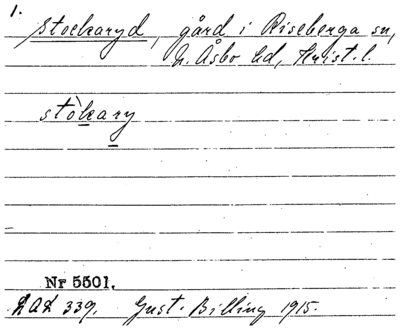 1.
Stockaryd, gård i Riseberga sn,
N. Åsbo hd, Krist. l.
stòkary
Nr 5501.
LAL 339. Gust. Billing 1915.